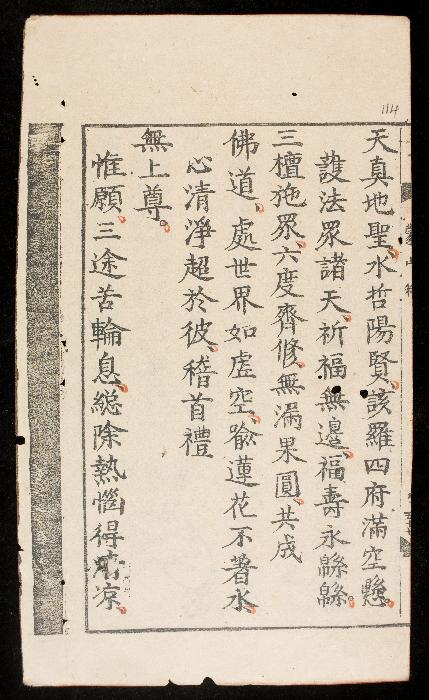 天真地聖水哲陽賢該羅四府滿空懸
護法眾諸天祈福無邊福壽永緜緜
三檀施眾六度齊修無漏果圓共成
佛道處世界如虛空喩蓮花不著水
心清淨超於彼稽首禮
無上尊
惟願三途苦輪息總除熱惱得清凉
114